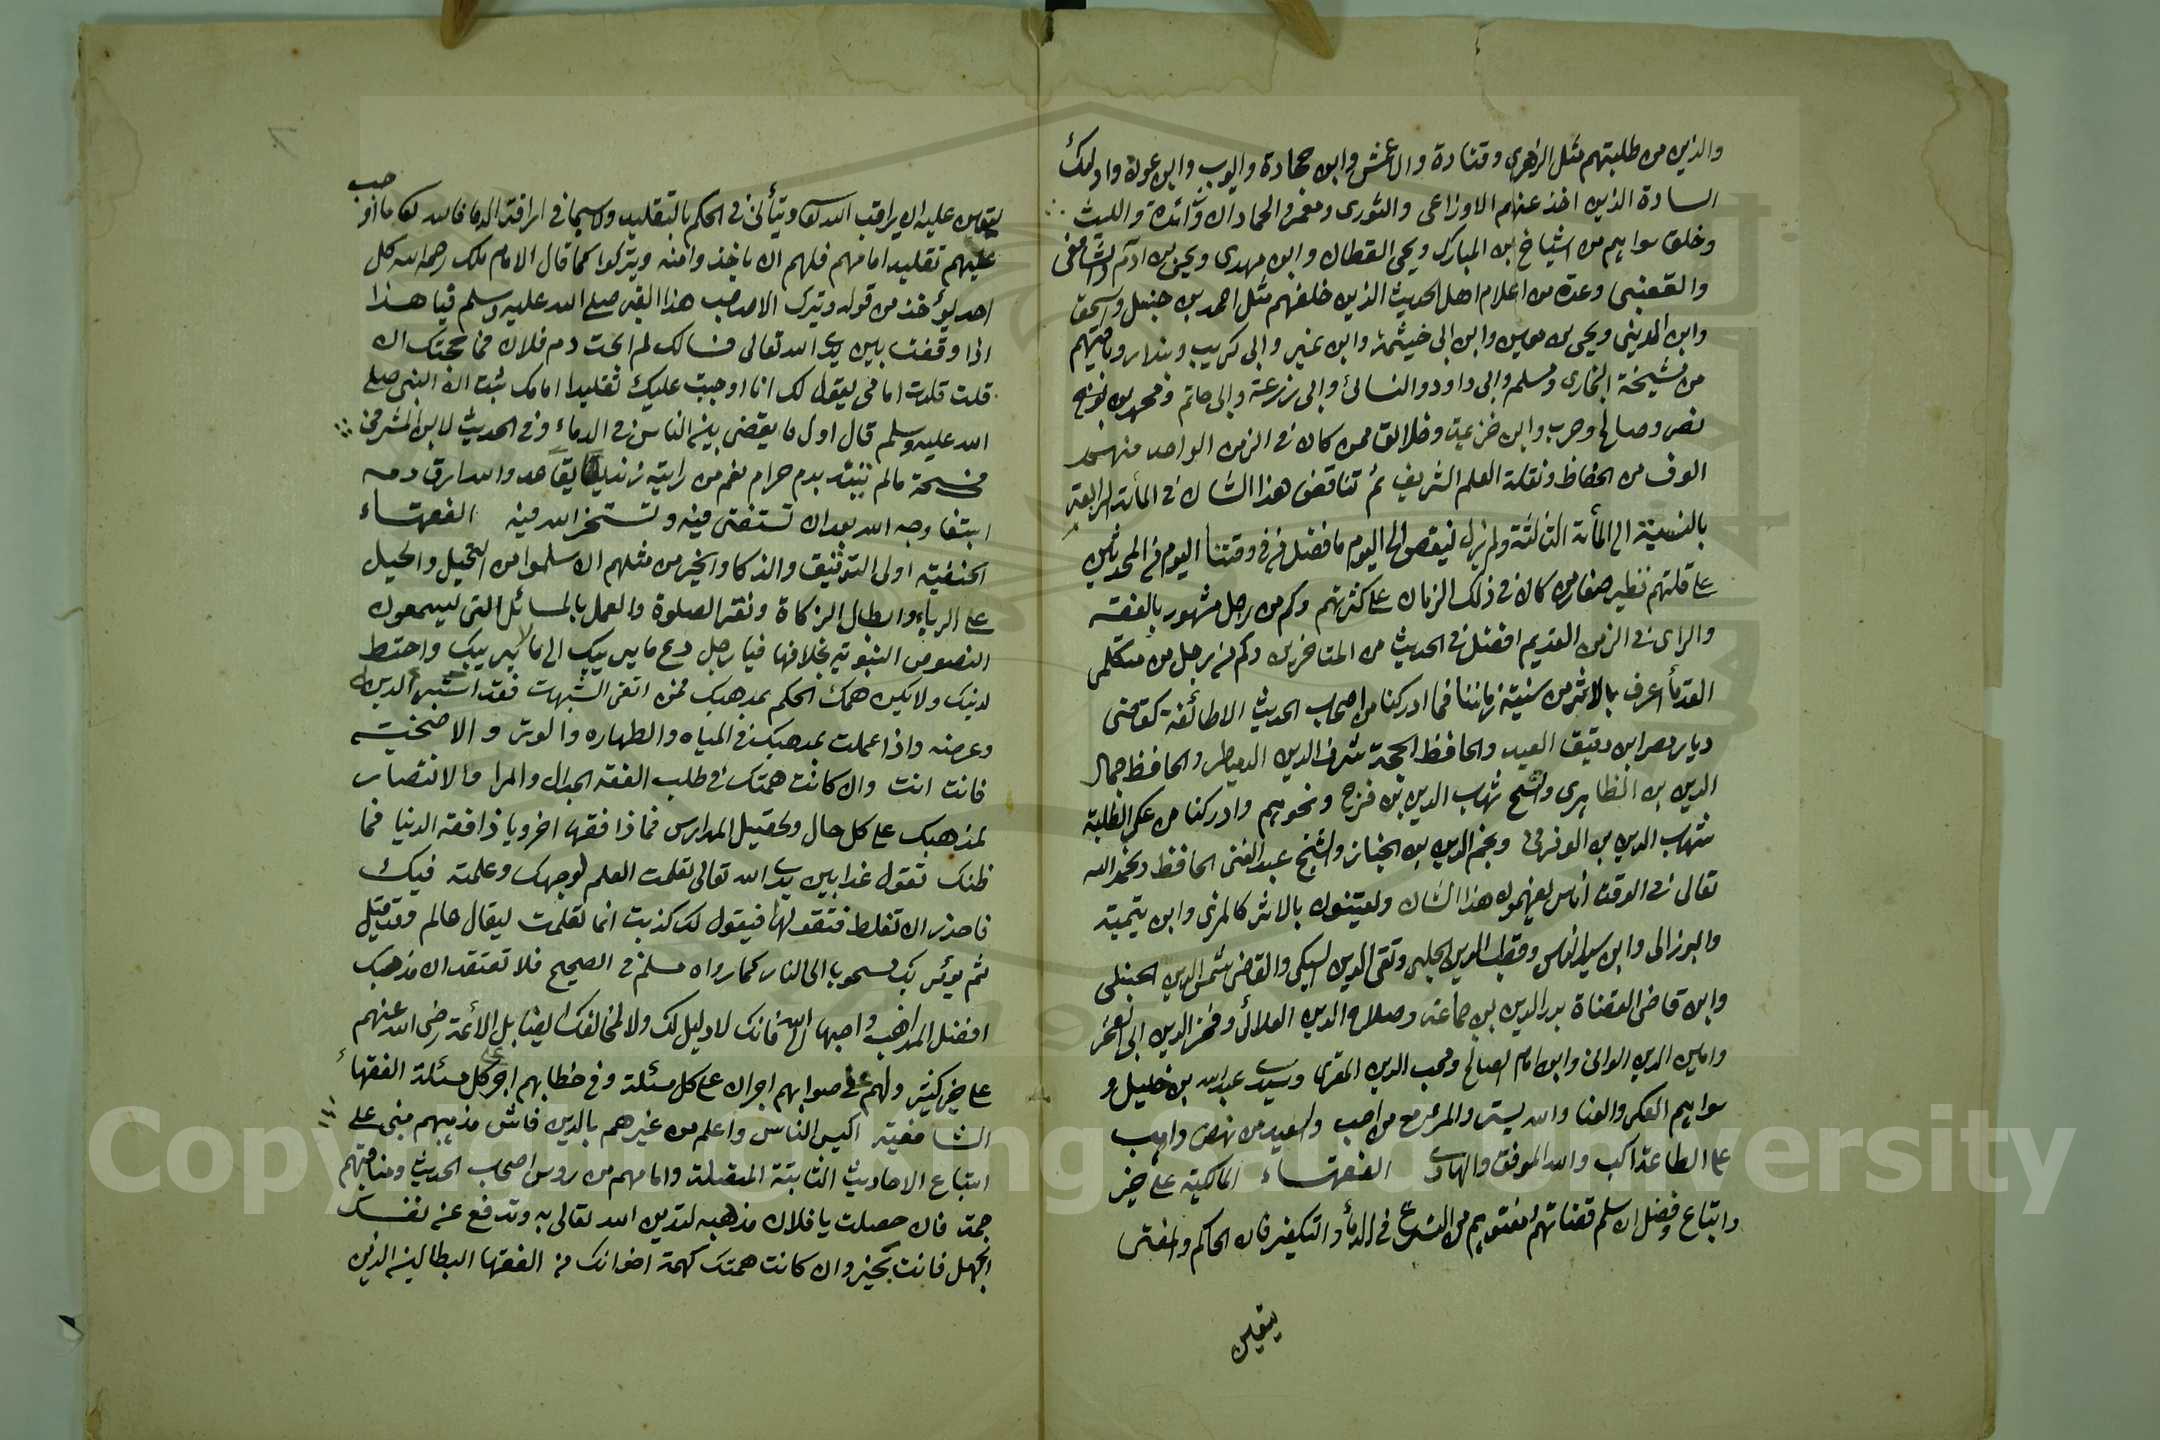 والذين من طلبتهم مثل الزهري وقتادة والاعمش وابن جحادة وايوب وابن عون واولئك
السادة الذين اخذ عنهم الاوزاعى والثورى ومعمر والحمادان وزائدة والليث
وخلق سواهم من اشياخ ابن المبارك ويحى القطان وابن مهدى ويحيى بن ادم والشافعى
والقعنبى وعدة من اعلام اهل الحديث الذين خلفهم مثل احمد بن حنبل واسحق
وابن المدينى ويحيى بن معين وابن ابى خيثمة وابن نمير وابى كريب وبندار وباقيهم
من مشيخة البخارى ومسلم وابى داود والنسائى وابى زرعة وابى حاتم ومحمد بن
نصر وصالح وحرب وابن خزيمة وخلائق ممن كان فى الزمن الواحد منهم
الوف من الحفاظ ونقلة العلم الشريف ثم تناقص هذا الشان فى المأة الرابعة
بالنسبة الى المأة الثالثة ولم يزل ينقص الى اليوم فافضل فى وقتنا اليوم فى المحدثين
على قلتهم نظير صغار من كان فى ذلك الزمان على كثرتهم وكم من رجل مشهور بالفقه
والراى فى الزمن القديم افضل فى الحديث من المتاخرين وكم من رجل من متكلمى
القدمأ اعرف بالاثر من سنية زماننا فما ادركنا من اصحاب الحديث الا طائفة كقاضى
ديار مصر ابن دقيق العيد والحافظ الحجة شرف الدين الدمياطى والحافظ جمال
الدين بن الظاهرى والشيخ شهاب الدين بن فرح ونحوهم وادركنا من عكر الطلبة
شهاب الدين بن الدفوفى ونجم الدين بن الخباز والشيخ عبد الغنى الحافظ وبحمد الله
تعالى فى الوقت اناس يفهمون هذا الشان ويعتنون بالاثر كالمزى وابن تيمية
والبرزالى وابن سيد الناس وقطب الدين الحلبى وتقى الدين السبكى والقاضى شمس الدين الحنبلى
وابن قاضى القضاة بدر الدين بن جماعة وصلاح الدين العلائى وفخر الدين ابن الفخر
وامين الدين الوانى وابن امام الصالح ومحب الدين المقدسى وسيدى عبد الله بن خليل و
سواهم العكر والغثا والله يستر والمرء مع من احب والسعيد من نهض واهب
على الطاعة اكب والله الموفق والهادى الفقهاء المالكية على خير
واتباع وفضل ان سلم قضاتهم ومفتوهم من التسرع فى الدمأ والتكفير فان الحاكم والمفتى
يتعين
يتعين عليه ان يراقب الله تعا ويتأنى فى الحكم بالتقليد ولاسيما فى اراقة الدما فالله تعا ما اوجب
عليهم تقليد امامهم فلهم ان ياخذوا منه ويتركوا كما قال الامام ملك رحمه الله كل
احد يؤخذ من قوله ويترك الا صاحب هذا القبر صلى الله عليه وسلم فيا هذا
اذا وقفت بين يدى الله تعالى فسالك لم ابحت دم فلان فما حجتك ان
قلت قلدت امامى يقول لك انا اوجبت عليك تقليد امامك ثبت ان النبى صلى
الله عليه وسلم قال اول ما يقضى بين الناس فى الدماء وفى الحديث لا يزال المرء فى
فسحة مالم يتند بدم حرام نعم من رايته زنديقا هد والله ارق دمه
ابتغا وجه الله بعد ان تستفتى فيه وتستخر الله فيه الفقهاء
الحنفية اولى التوفيق والذكا والخير من مثلهم ان سلموا من التحيل والحيل
على الربا وابطال الزكاة ونقر الصلوة والعمل بالمسائل التى يسمعون
النصوص النبوية بخلافها فيا رجل دع ما يريبك الى ما لا يريبك واحتط
لدينك ولا يكن همك الحكم بمذهبك فمن اتقى الشبهات فقد استبرأ لدينه
وعرضه واذا عملت بمذهبك فى المياه والطهاره والوتر والاضحية
فانت انت وان كانت همتك فى طلب الفقه الجدال والمرا والانتصار
لمذهبك على كل حال وتحصيل المدارس فماذا فقها اخرويا ذا فقه الدنيا فما
ظنك تقول غدا بين يدى الله تعالى تعلمت العلم لوجهك وعلمته فيك
فاحذر ان تغلط فتقولها فيقول لك كذبت انما تعلمت ليقال عالم وقد قيل
ثم يؤمر بك مسحوبا الى النار كما رواه مسلم فى الصحيح فلا تعتقد ان مذهبك
افضل المذاهب واحبها الى الله فانك لا دليل لك ولا لمخالفك ايضا بل الأئمة رضى الله عنهم
على خير كثير ولهم فى صوابهم اجران على كل مسئلة وفى خطابهم اجر على كل مسئلة الفقهأ
الشافعية اكيس الناس واعلم من غيرهم بالدين فاس مذهبهم مبنى على
اتباع الاحاديث الثابتة المتصلة وامامهم من روس اصحاب الحديث ومناقبهم
جمة فان حصلت يا فلان مذهبه لتدين الله تعالى به وتدفع عن نفسك
الجهل فانت بخير وان كانت همتك كهمة اخوانك من الفقها البطالين الذين